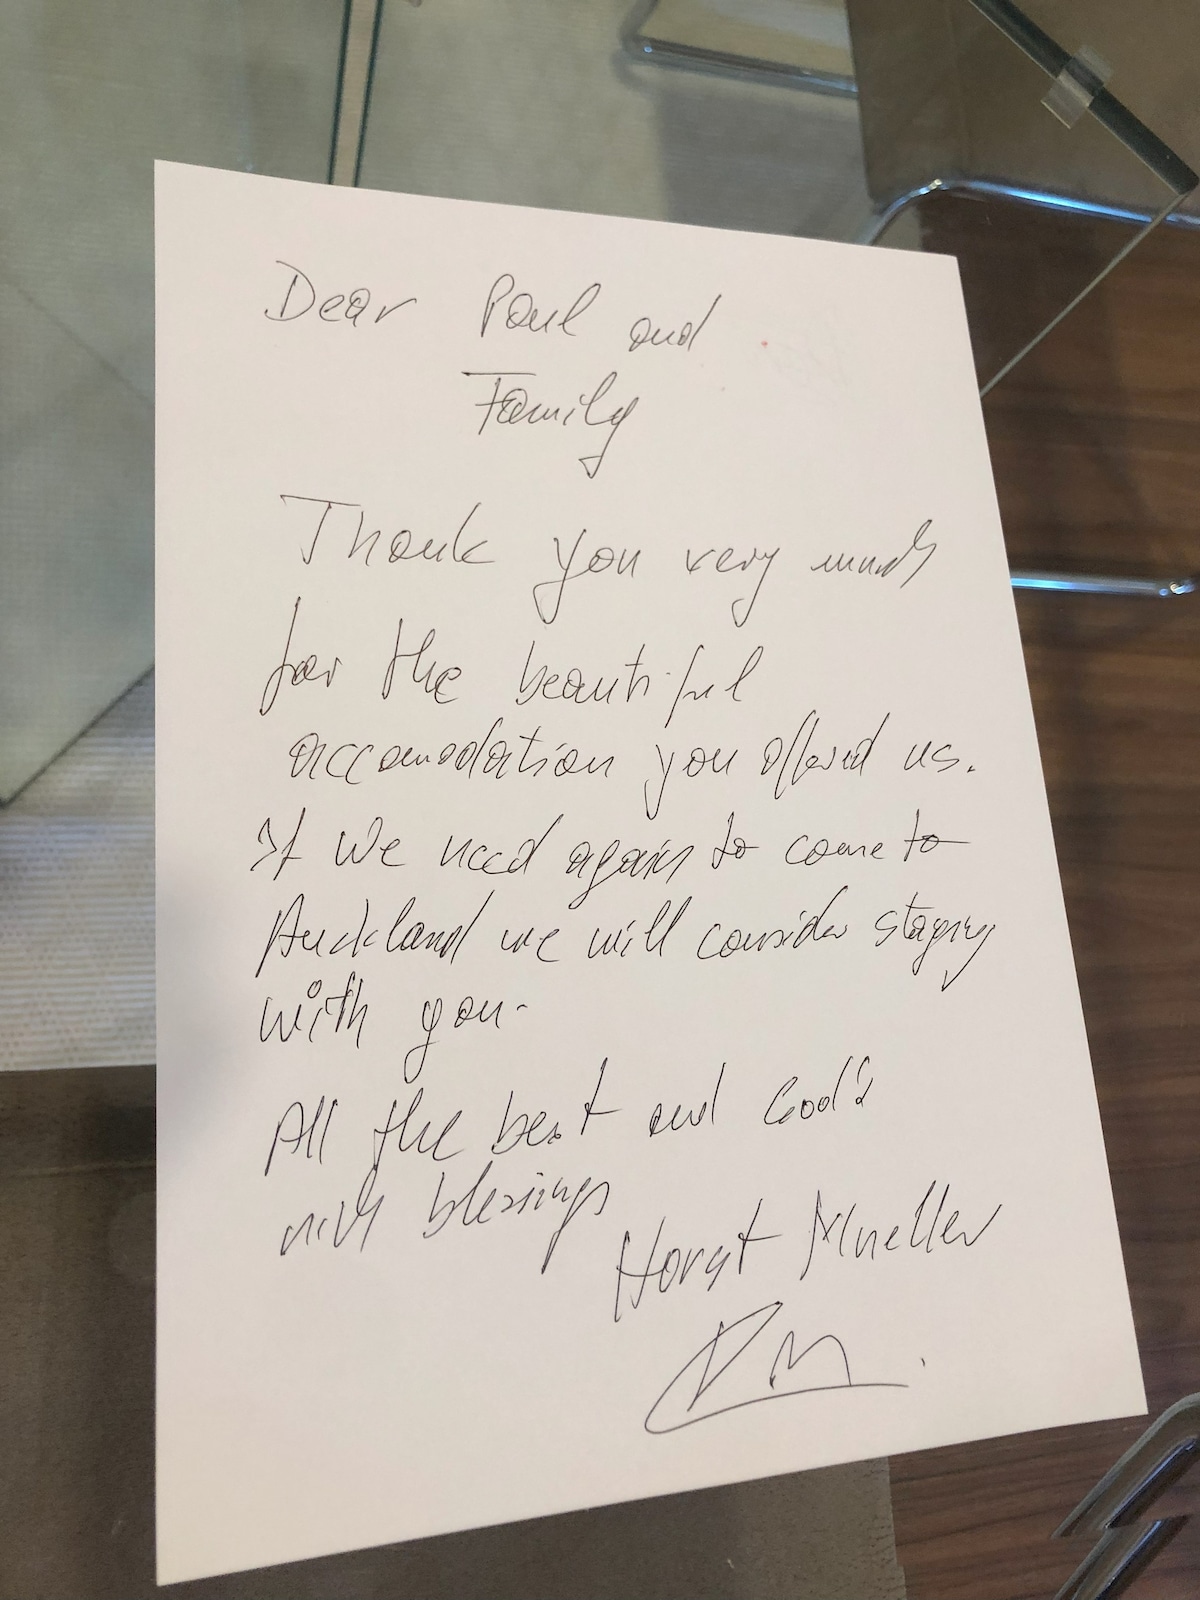 Dear Paul and
Family
Thank you very much
for the beautiful
accomodation you offered us.
If we need again to come to
Auckland we will consider staying
with you.
All the best and God's
rich blessings
Horst Mueller